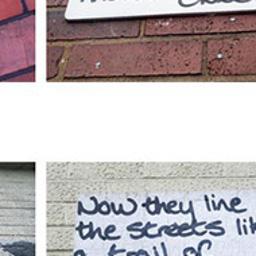 Now they line
the streets lik
a trail of